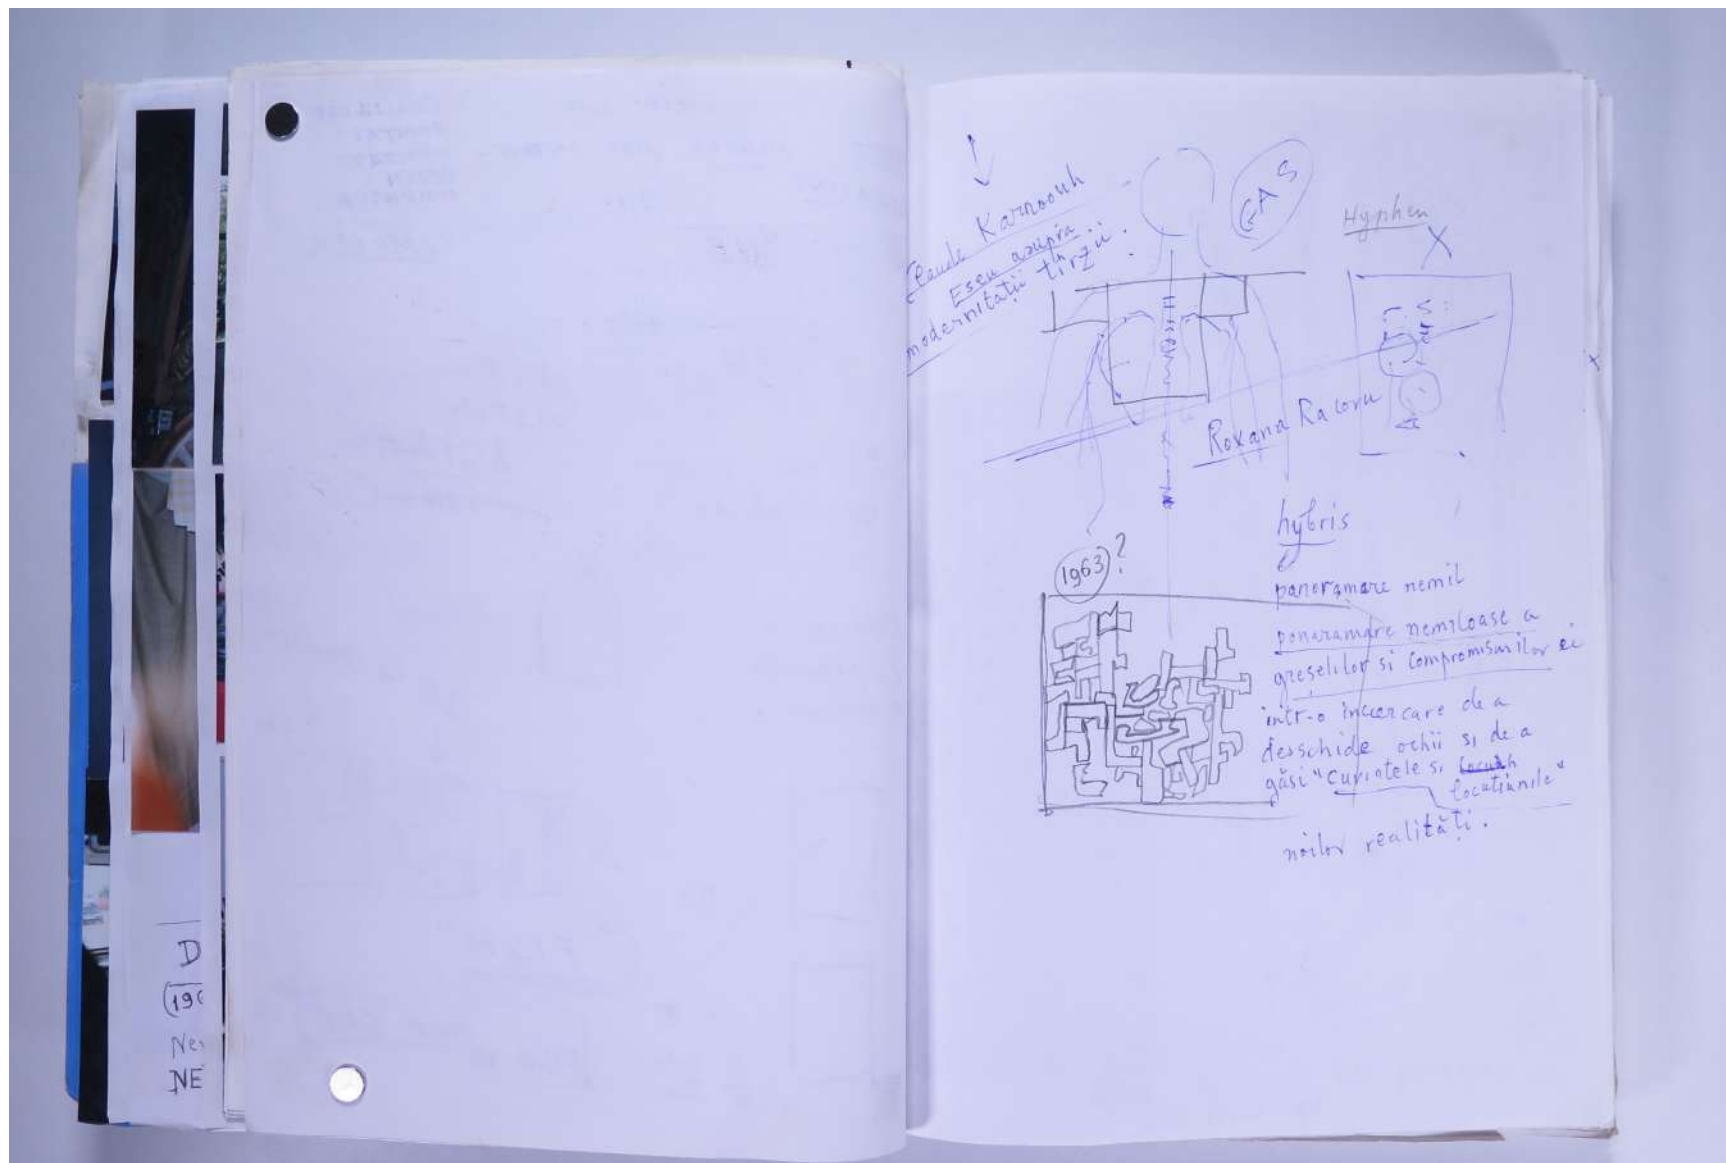 Claude Karnoouh
Eseu asupra
modernității tîrzii.
GAS
Hyphen
X
Roxana
hybris
1963?
panoramare nemil
panaramare nemiloase a
greșelilor si compromisurilor ei
intr-o incercare de a
deschide ochii si de a
găsi "cuvintele si
locutiunile"
noilor realități.
D
(19
Ne
NE